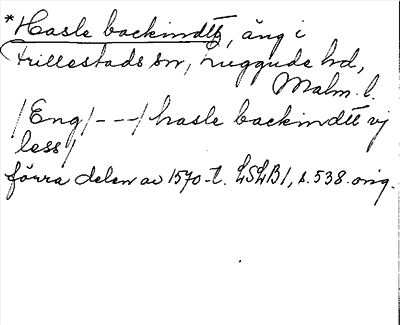 *Hasle backindtz, äng i
Frillestads sn, Luggude hd,
Malm. l.
/Eng/---/hasle backindtt vj
less/
förra delen av 1570-t. LSLB1, s. 538. orig.